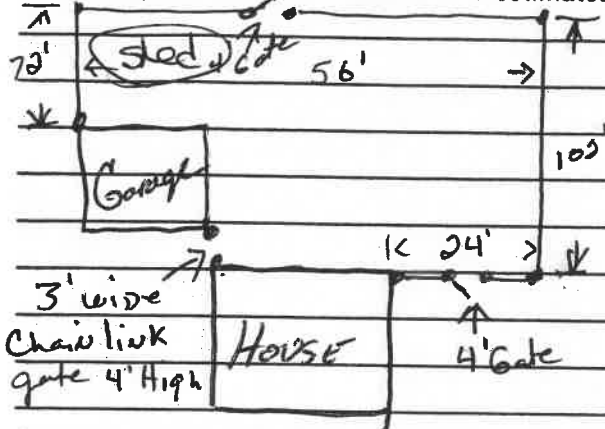 shed
Gate
72'
56'
102'
Garage
24'
3' wide
Chain link
gate 4' High
HOUSE
4' Gate